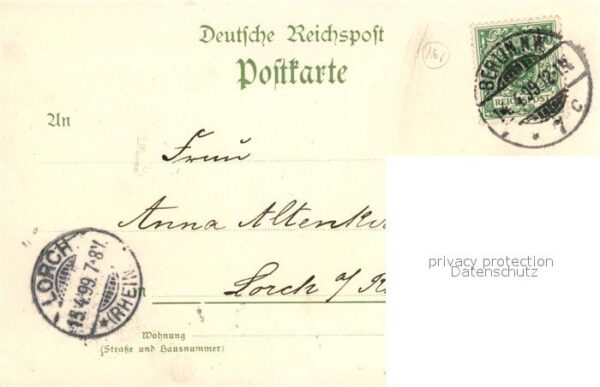 Deutsche Reichspost
Postkarte
16,
BERLIN N.W.
REICHSPOST
7 c
An
Frau
Anna
Lorch a/
LORCH
13.4.99. 7-8V.
(RHEIN)
Wohnung
(Straße und Hausnummer)
privacy protection
Datenschutz